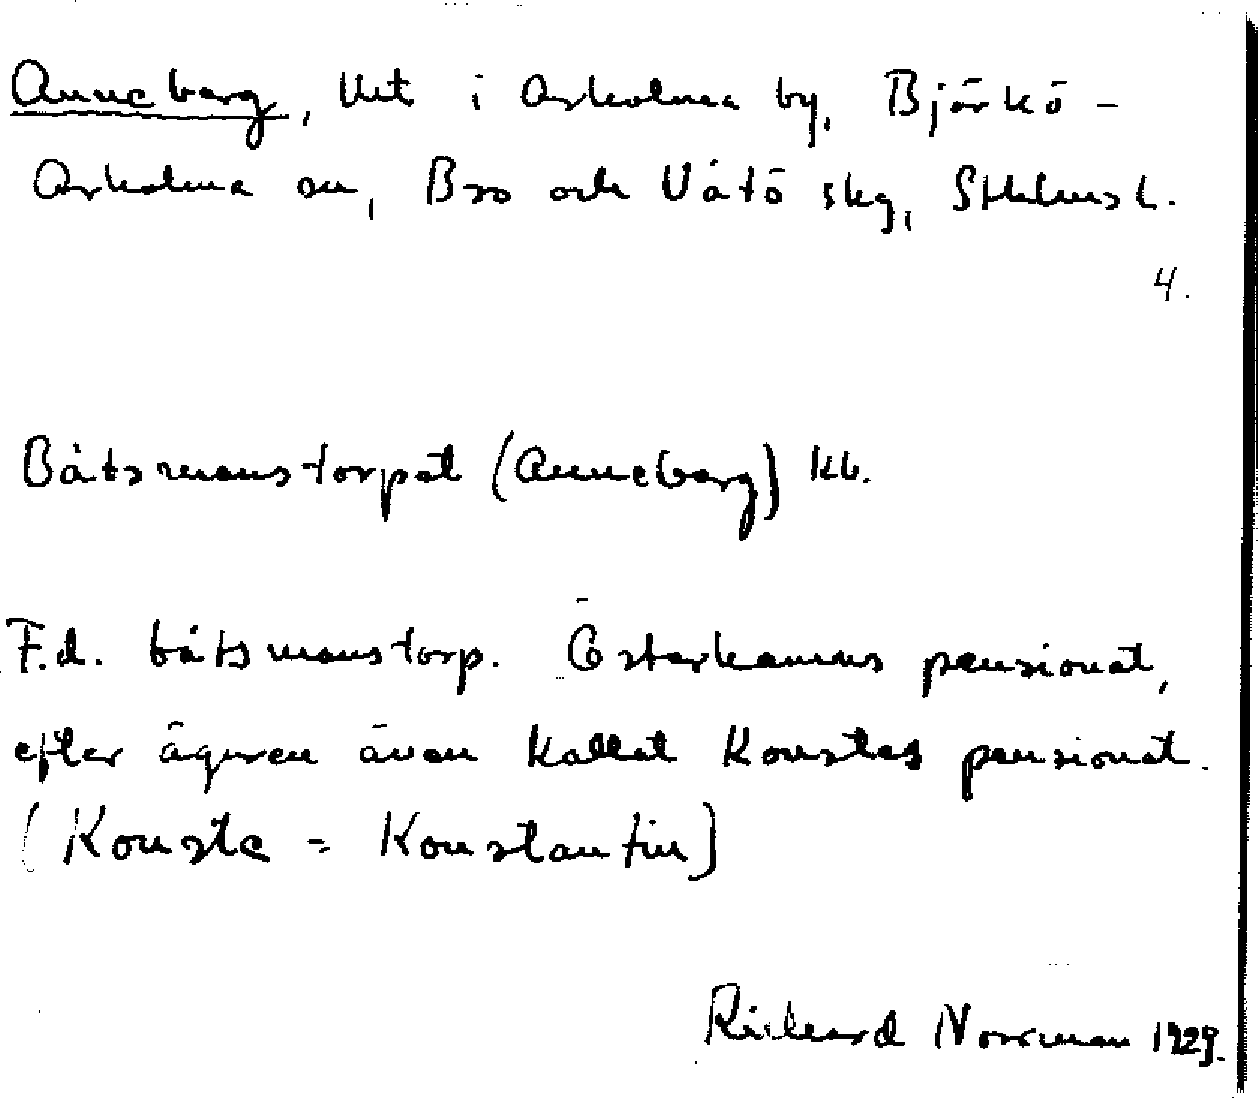 Anneberg, lht i Arholma by, Björkö-
Arholma sn, Bro och Vätö skg, Sthlms l.
4.
Båtsmanstorpet (Anneberg) kb.
F.d. båtsmanstorp. Österhamns pensionat,
efter ägaren även kallat Konstes pensionat.
(Konste = Konstantin)
Rickard Norrman 1929.